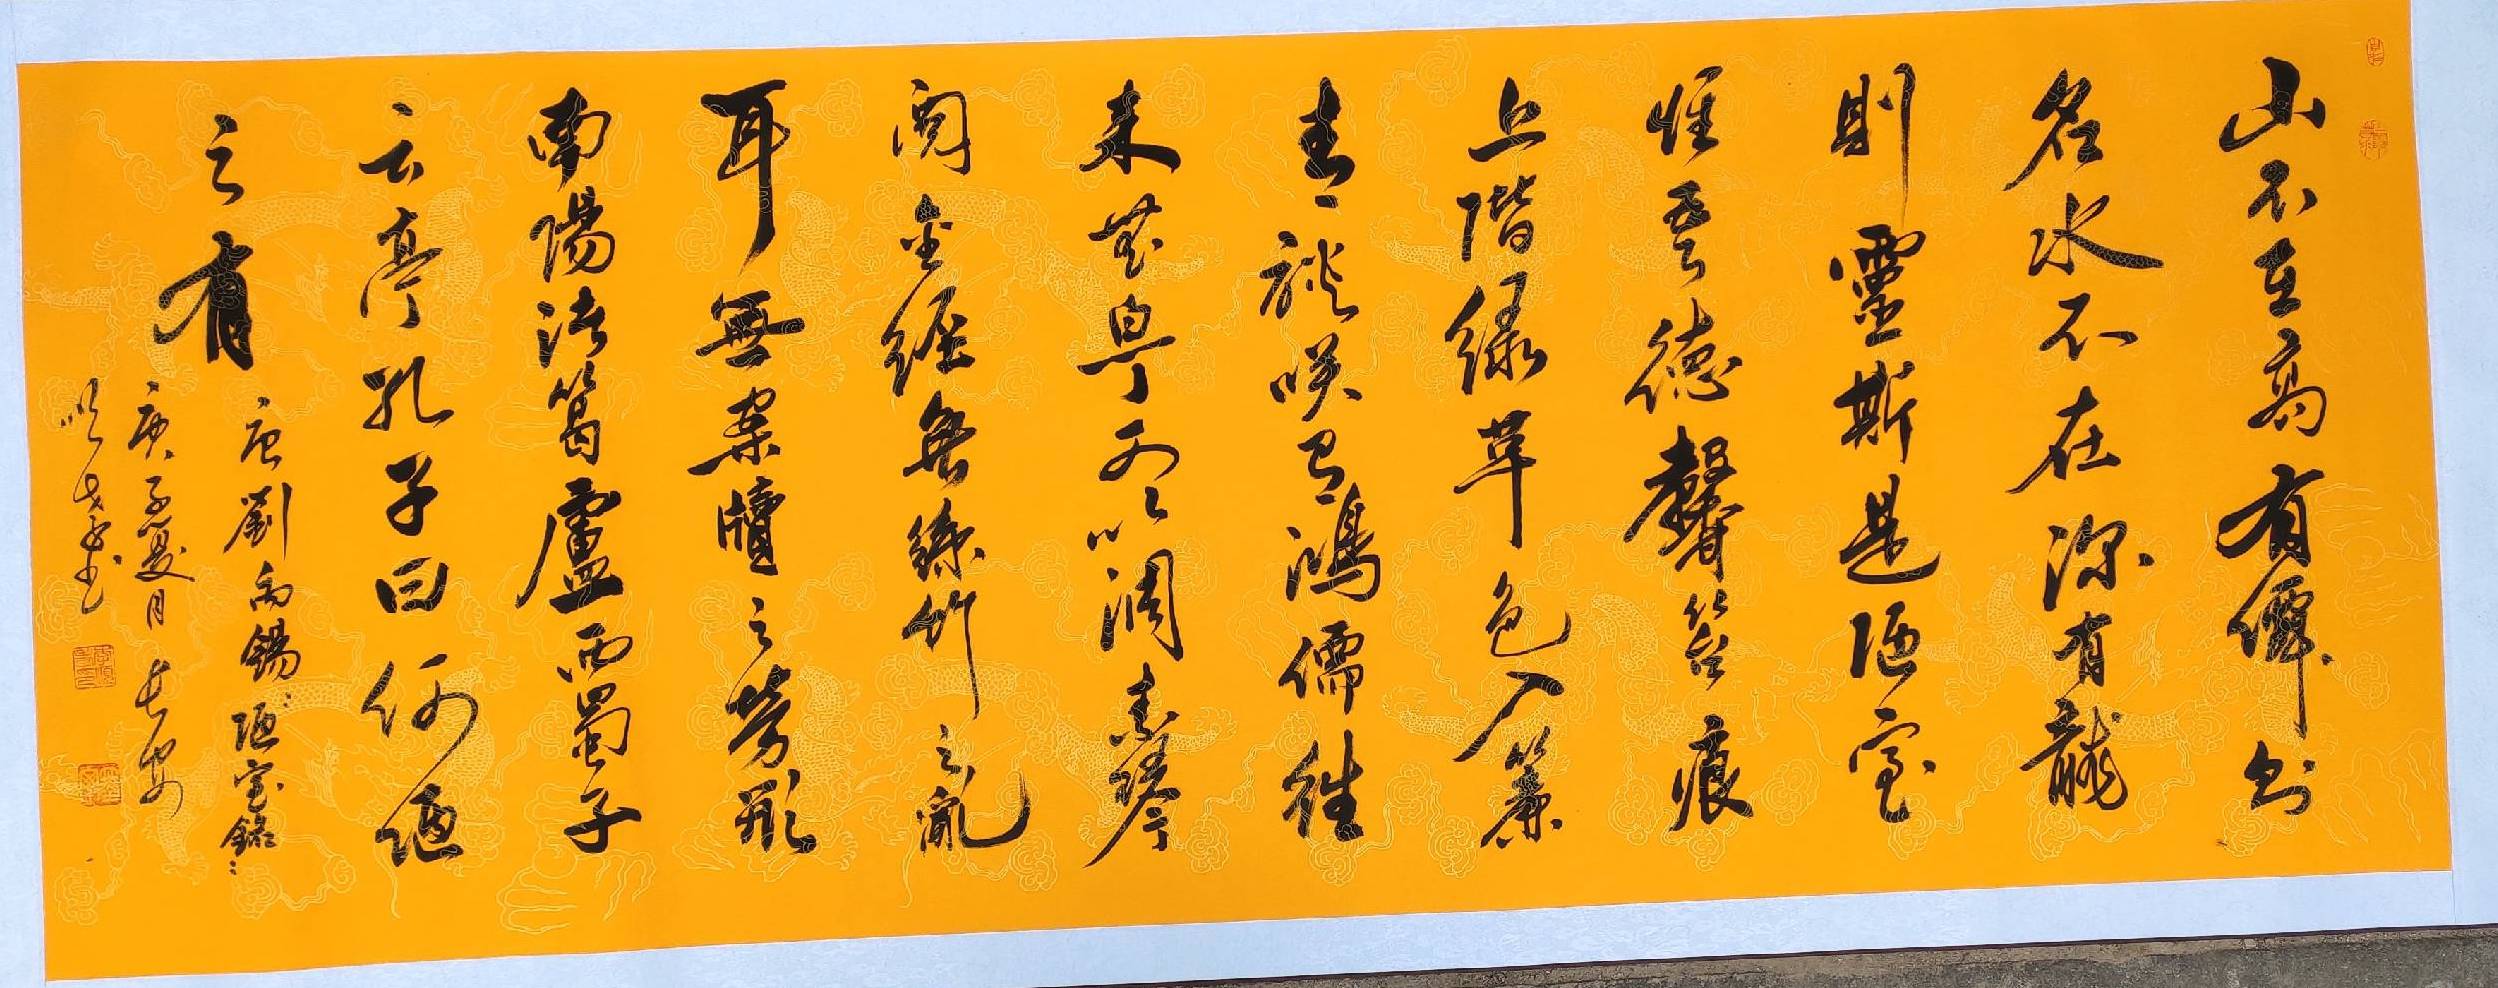 山不在高有僊則
名水不在深有龍
則靈斯是陋室
惟吾德馨苔痕
上階緑草色入簾
青談咲有鴻儒往
来無白丁可以調素琴
閲金經無絲竹之亂
耳無案牘之勞形
南陽諸葛廬西蜀子
云亭孔子曰何陋
之有
唐劉禹錫陋室銘
庚子夏月長安